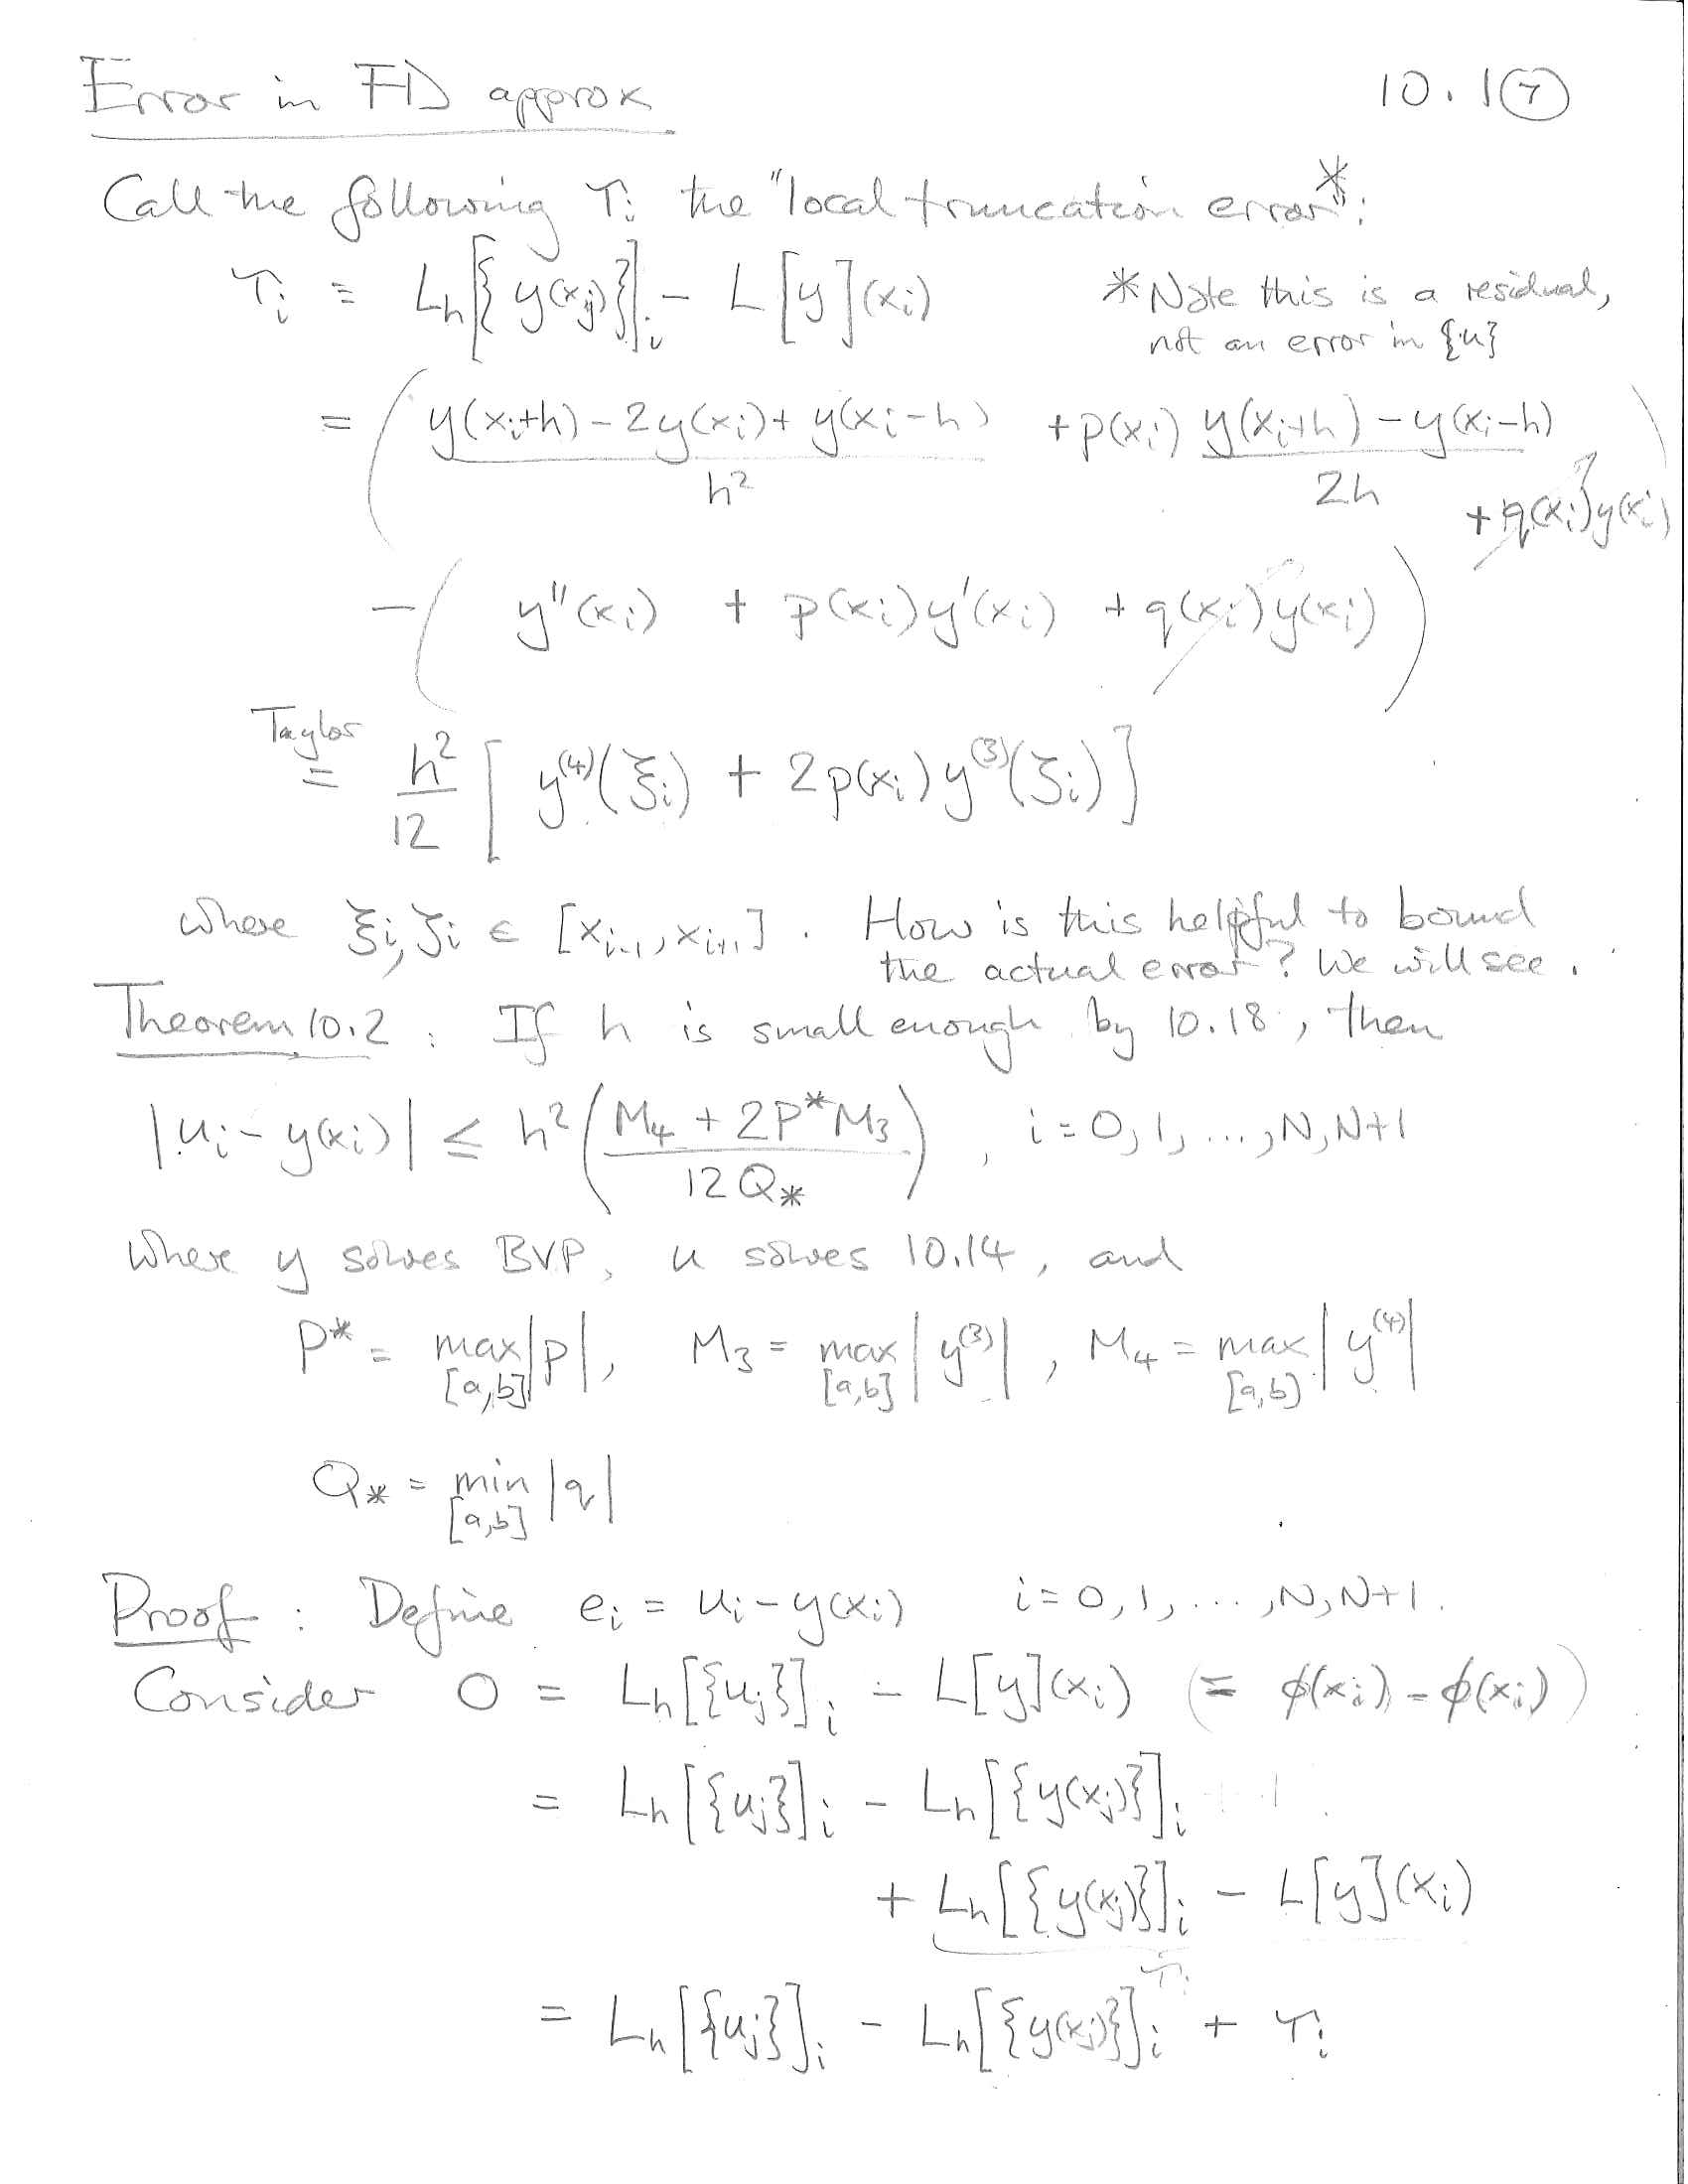 Error in FD approx
10.1 ⑦
Call the following τi the "local truncation error"*:
τi = Lh[{y(xj)}]i - L[y](xi)
*Note this is a residual,
not an error in {u}
= ( (y(xi+h) - 2y(xi) + y(xi-h))/h² + p(xi) (y(xi+h) - y(xi-h))/2h + q(xi)y(xi) )
- ( y''(xi) + p(xi)y'(xi) + q(xi)y(xi) )
Taylor
= h²/12 [ y⁽⁴⁾(ξi) + 2p(xi) y⁽³⁾(ζi) ]
where ξi, ζi ∈ [xi-1, xi+1]. How is this helpful to bound
the actual error? We will see.
Theorem 10.2 : If h is small enough by 10.18, then
|ui - y(xi)| ≤ h² ( (M4 + 2P*M3)/12Q* ) , i = 0, 1, ..., N, N+1
where y solves BVP, u solves 10.14, and
P* = max[a,b] |p|, M3 = max[a,b] |y⁽³⁾|, M4 = max[a,b] |y⁽⁴⁾|
Q* = min[a,b] |q|
Proof : Define ei = ui - y(xi) i = 0, 1, ..., N, N+1.
Consider 0 = Lh[{uj}]i - L[y](xi) (= φ(xi) - φ(xi))
= Lh[{uj}]i - Lh[{y(xj)}]i
+ Lh[{y(xj)}]i - L[y](xi)
τi
= Lh[{uj}]i - Lh[{y(xj)}]i + τi